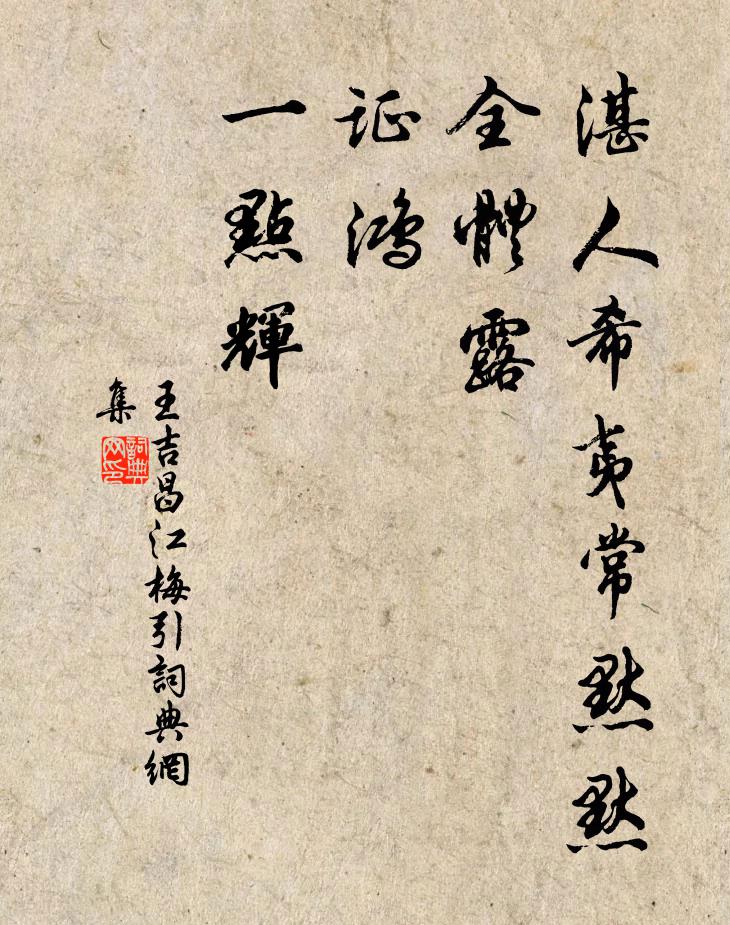 湛人希夷常默默
全體露
証鴻
一點輝
王吉昌江梅引詞典網
集
詞典
网印